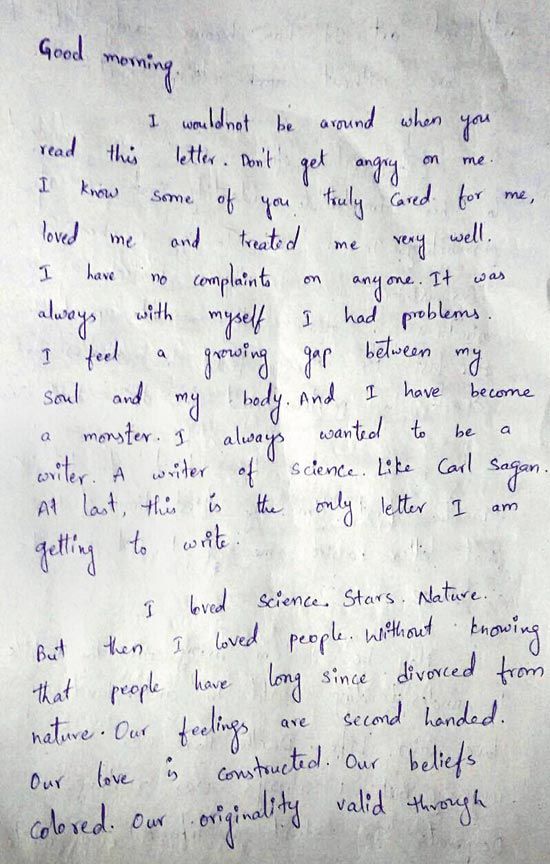 Good morning.
I wouldnot be around when you
read this letter. Don't get angry on me.
I know some of you truly cared for me,
loved me and treated me very well.
I have no complaints on anyone. It was
always with myself I had problems.
I feel a growing gap between my
soul and my body. And I have become
a monster. I always wanted to be a
writer. A writer of science. Like Carl Sagan.
At last, this is the only letter I am
getting to write.
I loved science. Stars. Nature.
But then I loved people. Without knowing
that people have long since divorced from
nature. Our feelings are second handed.
Our love is constructed. Our beliefs
colored. Our originality valid through